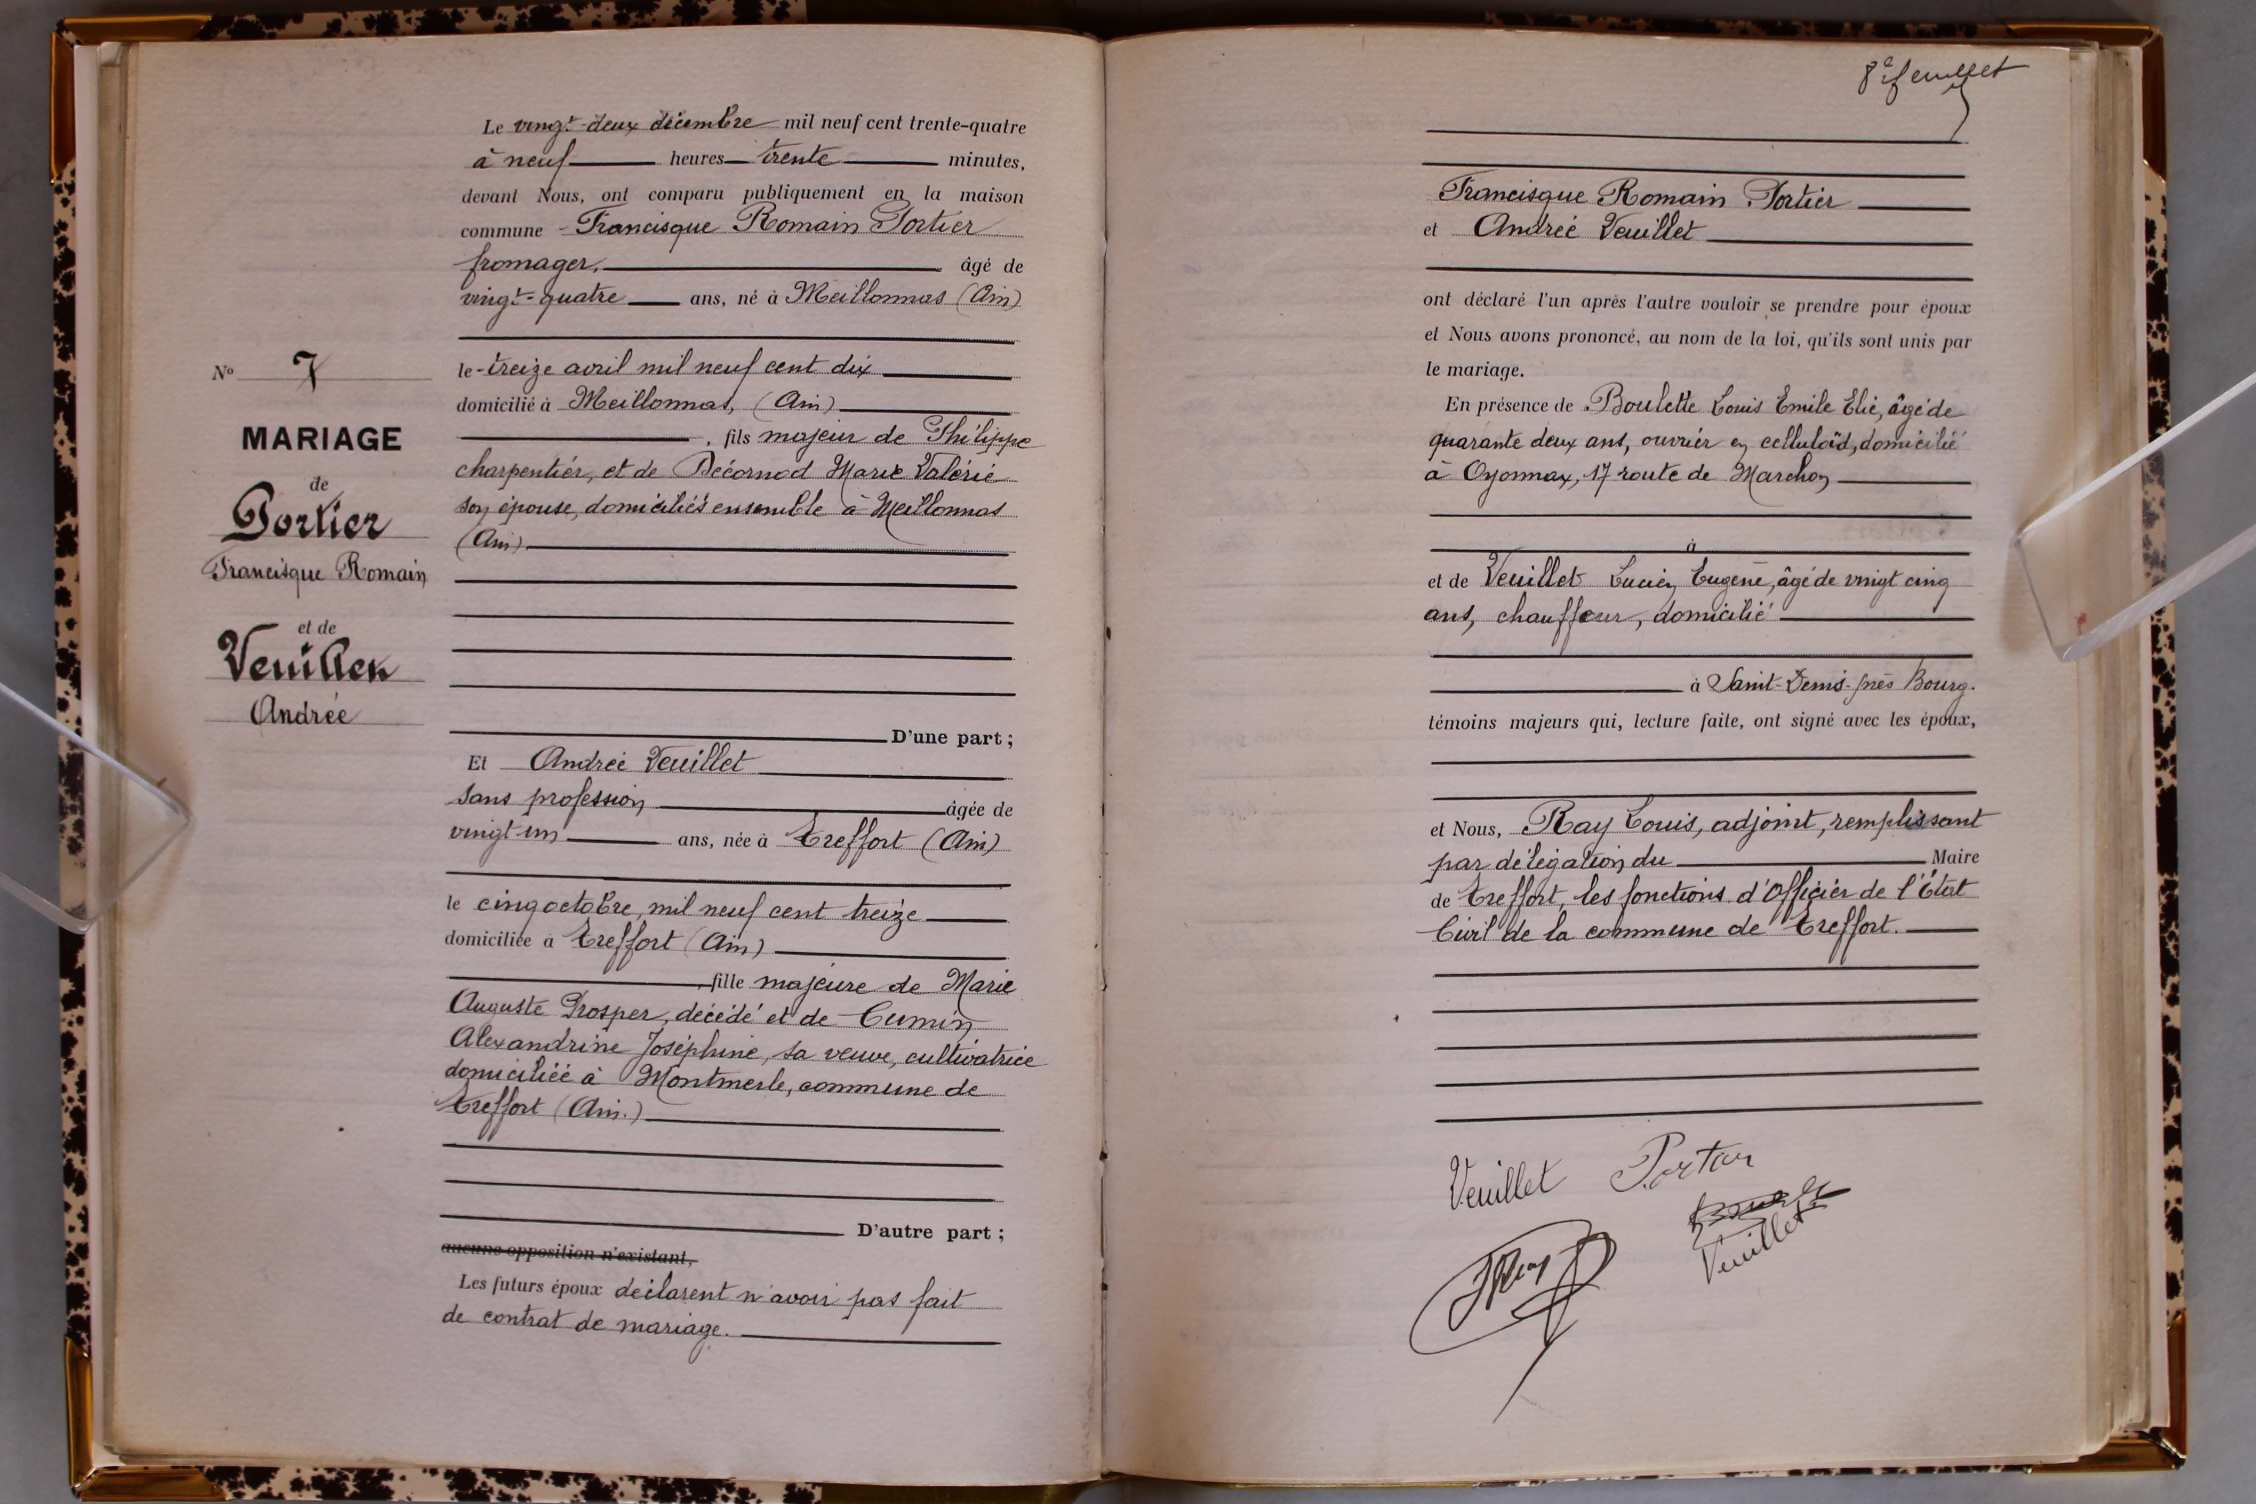 Le vingt-deux décembre mil neuf cent trente-quatre
à neuf heures trente minutes,
devant Nous, ont comparu publiquement en la maison
commune Francisque Romain Portier
fromager, âgé de
vingt-quatre ans, né à Meillonnas (Ain)
le treize avril mil neuf cent dix
domicilié à Meillonnas, (Ain)
, fils majeur de Philippe
charpentier, et de Décornod Marie Valérie
son épouse, domiciliés ensemble à Meillonnas
(Ain)
D'une part ;
No 7
MARIAGE
de
Portier
Francisque Romain
et de
Veuillet
Andrée
Et Andrée Veuillet
sans profession âgée de
vingt-un ans, née à Treffort (Ain)
le cinq octobre, mil neuf cent treize
domiciliée à Treffort (Ain)
, fille majeure de Marie
Auguste Prosper, décédé et de Cumin
Alexandrine Joséphine, sa veuve, cultivatrice
domiciliée à Montmerle, commune de
Treffort (Ain.)
D'autre part ;
aucune opposition n'existant,
Les futurs époux déclarent n'avoir pas fait
de contrat de mariage.
8e feuillet
Francisque Romain Portier
et Andrée Veuillet
ont déclaré l'un après l'autre vouloir se prendre pour époux
et Nous avons prononcé, au nom de la loi, qu'ils sont unis par
le mariage.
En présence de Boulette Louis Emile Elie, âgé de
quarante deux ans, ouvrier en celluloïd, domicilié
à Oyonnax, 17 route de Marchon
à
et de Veuillet Lucien Eugène, âgé de vingt cinq
ans, chauffeur, domicilié
à Saint-Denis-près Bourg.
témoins majeurs qui, lecture faite, ont signé avec les époux,
et Nous, Ray Louis, adjoint, remplissant
par délégation du Maire
de Treffort, les fonctions d'Officier de l'État
Civil de la commune de Treffort.
Veuillet Portier
Veuillet